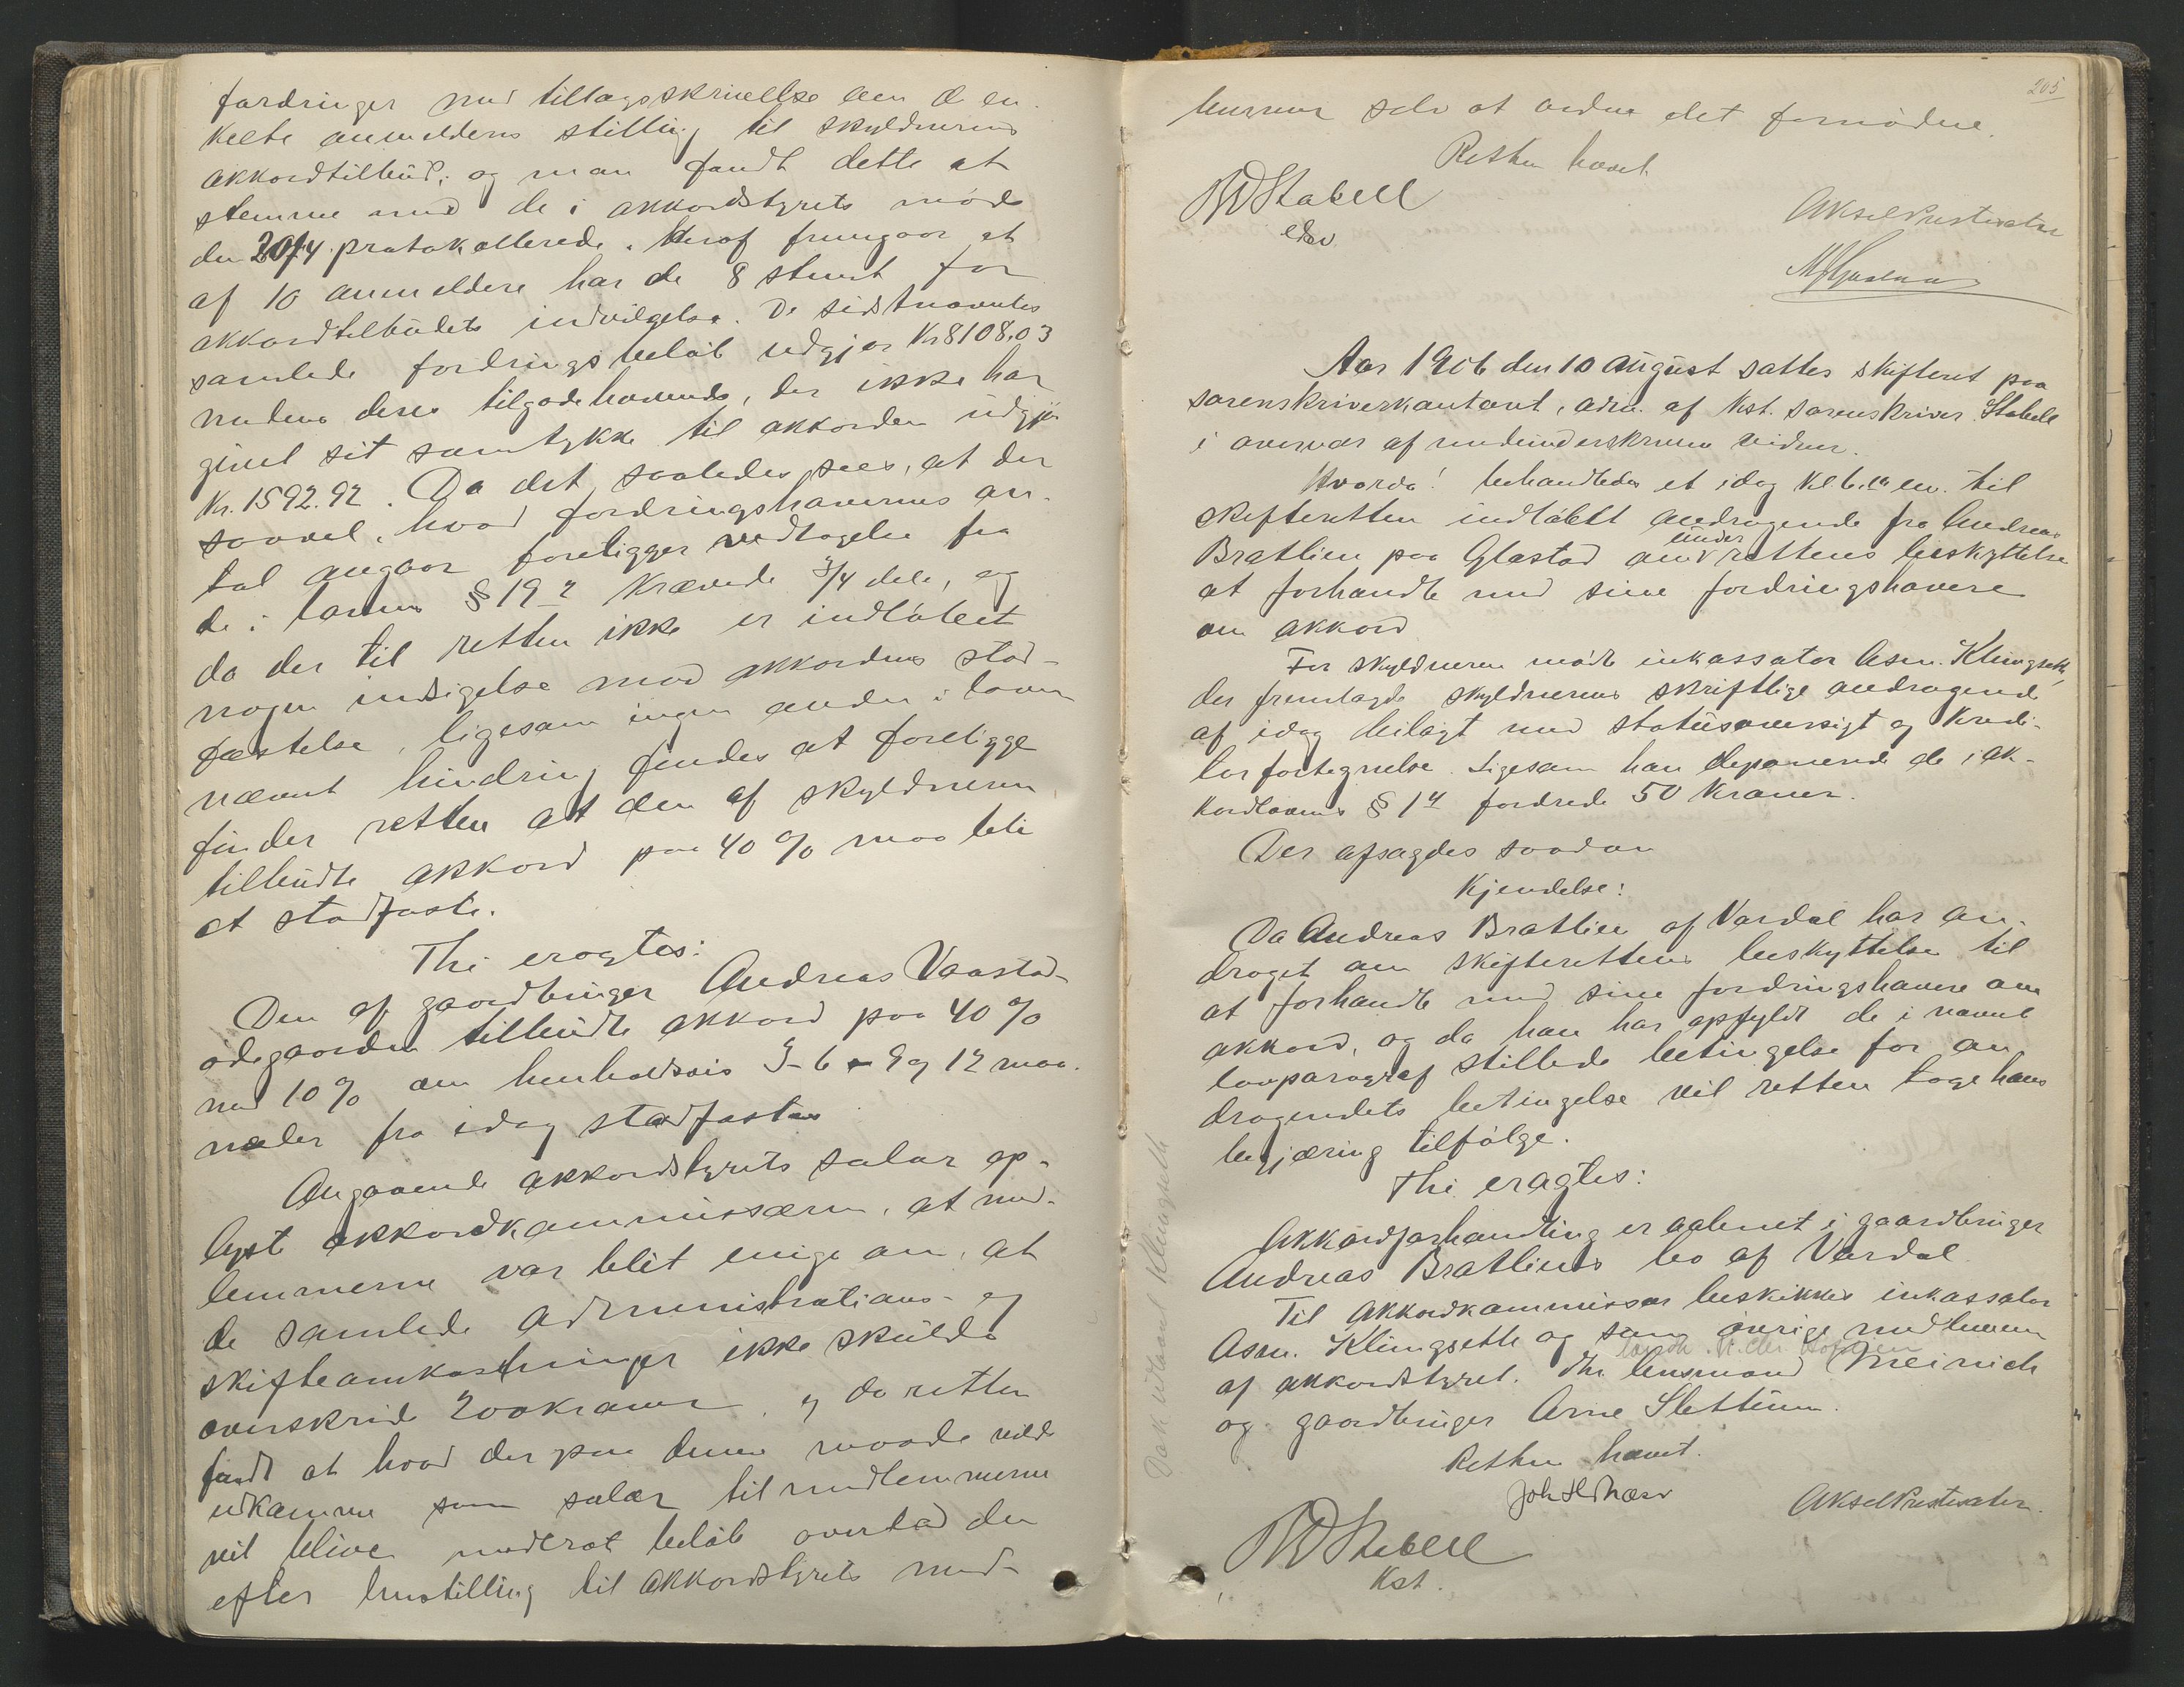 fordringer med tillægsskrivelse om d en-
kelte anmelderes stilling til skyldnerens
akkordtilbud; og man fandt dette at
stemme med de i akkordstyrets möde
den 20/4 protokollerede. Heraf fremgaar at
af 10 anmeldere har de 8 stemt for
akkordtilbudets indvilgelse. De sidstnævntes
samlede fordringsbelöb udgjør Kr 8108.03
medens deres tilgodehavende, der ikke har
givet sit samtykke til akkorden udgjør
Kr. 1592.92. Da det saaledes sees, at der
saavel, hvad fordringshavernes an-
tal angaar foreligger vedtagelse fra
de i lovens § 19 2 krævede 3/4 dele, og
da der til retten ikke er indlöbet
nogen indsigelse mod akkordens stad-
fæstelse, ligesom ingen anden i loven
nævnt hindring findes at foreligge
finder retten at den af skyldneren
tilbudte akkord paa 40 % maa bli
at stadfæste.
Thi eragtes:
Den af gaardbruger Andreas Vaastad-
ødegaarden tilbudte akkord paa 40 %
med 10 % om henholdsvis 3 - 6 - 9 og 12 maa-
neder fra idag stadfæstes
Angaaende akkordstyrets salær op-
lyste akkordkommissæren, at med-
lemmerne var blit enige om, at
de samlede administrations- og
skifteomkostninger ikke skulde
overskride 200 kroner, og da retten
fandt at hvad der paa denne maade vilde
udkomme som salær til medlemmerne
vil blive moderat beløb overlod den
efter henstilling til akkordstyrets med-
205
lemmer selv at ordne det fornödne.
Retten hævet
Stabell
edsv
Aksel Prestesæter
Aar 1906 den 10 august sattes skifteret paa
sorenskriverkontoret, adm. af kst. sorenskriver Stabell
i overvær af medunderskrevne vidner.
Hvorda! behandledes et idag kl. 6. em. til
skifteretten indløbet andragende fra Andreas
Bratlien paa Glæstad om under rettens beskyttelse
at forhandle med sine fordringshavere
om akkord
For skyldneren mødte inkassator Asm. Klingseth,
der fremlagde skyldnerens skriftlige andragende
af idag bilagt med statusoversigt og kredi-
torfortegnelse. Ligesom han deponerede de i ak-
kordlovens § 1 4 fordrede 50 kroner.
Der afsagdes saadan
Kjendelse:
Da Andreas Bratlien af Vardal har an-
draget om skifterettens beskyttelse til
at forhandle med sine fordringshavere om
akkord, og da han har opfyldt de i nævnt
lovparagraf stillede betingelse for an-
dragendets betingelse vil retten tage hans
begjæring tilfölge.
Thi eragtes:
Akkordforhandling er aabnet i gaardbruger
Andreas Bratliens bo af Vardal
Til akkordkommissær beskikkes inkassator
Asm. Klingseth og som øvrige medlemmer
af akkordstyret. Hr. lensmand Meinich
og gaardbruger Arne Slettum.
Retten hævet.
Joh. H. Næss
Aksel Prestesæter.
Stabell
Kst.
Dok. udlaant Klingseth